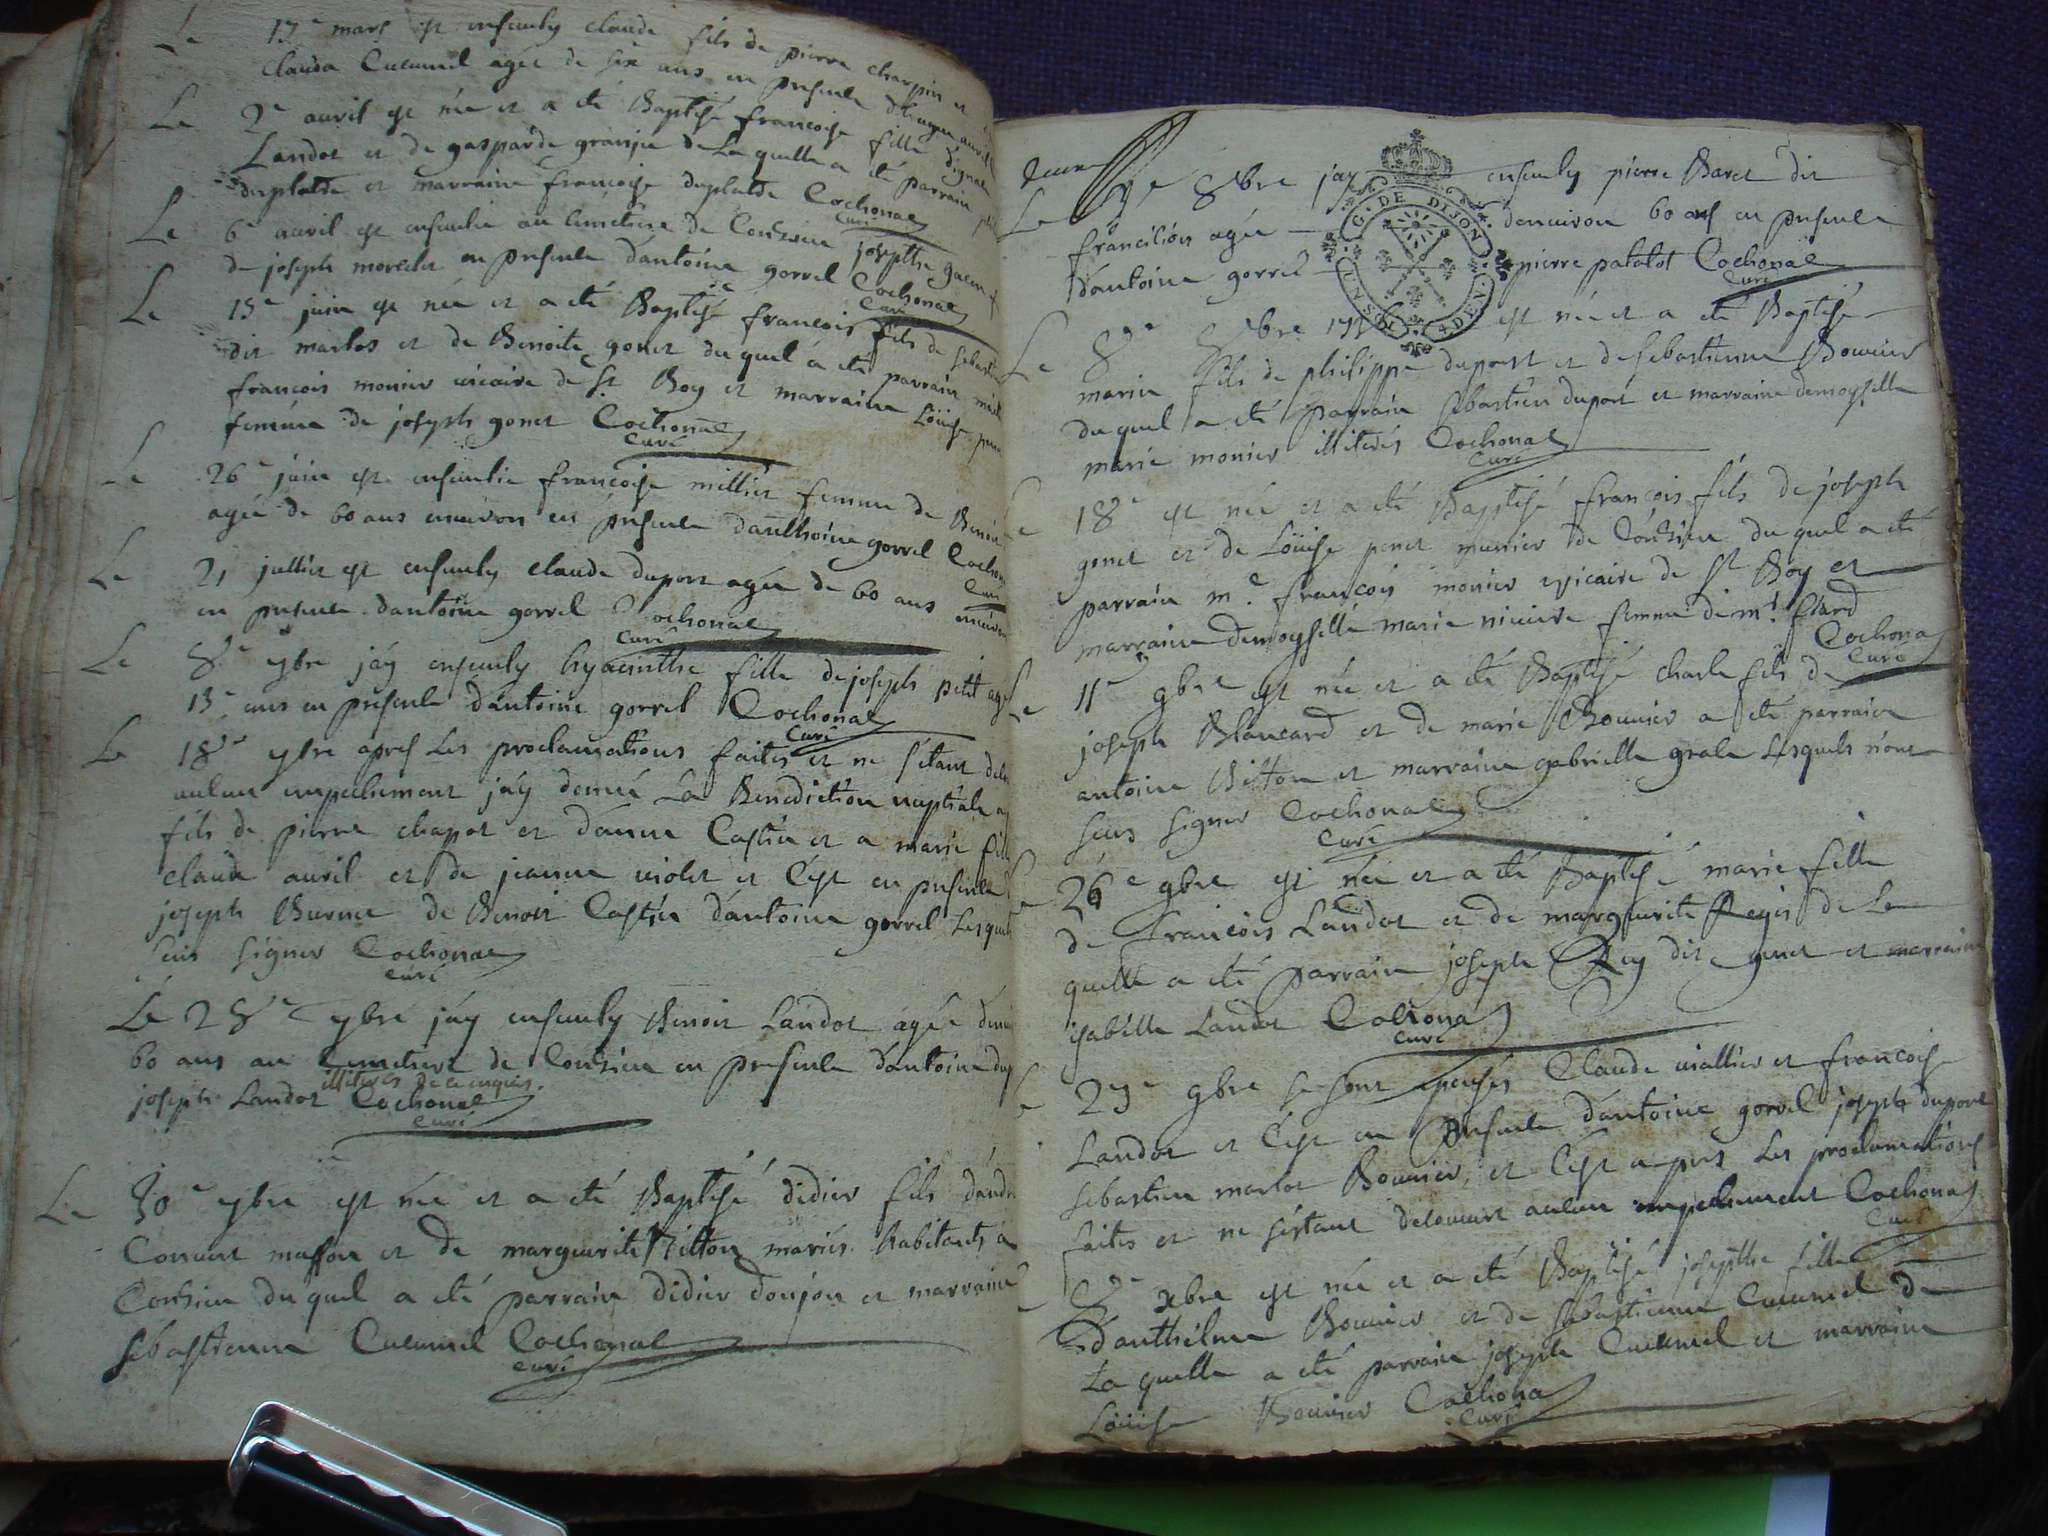 Le 17e mars est ensevely claude fils de pierre charpin et
clauda Cucumel agée de six ans en presence
Le 2e avril est née et a été Baptisé francoise fille
Landot et de gasparde de La quelle a été parrain
duplatde et marraine francoise duplatde Cochonat
curé
Le 6e avril est ensevelie au cimetiere de Conzieu josepthe
de joseph en presence d'antoine gorrel Cochonat
curé
Le 15e juin est née et a été Baptisé francois fils de
dit marlos et de Benoite gonet du quel a été parrain
francois monier vicaire de St Boy et marraine Löuise
femme de joseph gonet Cochonat
curé
Le 26e juin est ensevelie francoise millier femme de
agée de 60 ans environ en presence d'anthoine gorrel
Le 21 juillet est ensevely claude duport agée de 60 ans
en presence d'antoine gorrel Cochonat
curé
Le 8e 7bre jáy ensevely hyacinthe fille de joseph petit
13e ans en presence d'antoine gorrel Cochonat
curé
Le 18e 7bre apres Les proclamations faites et ne s'étant
aulcun empechement jáy donné La Benediction nuptiale
fils de pierre chapot et d'anne Castin et a marie
claude avril et de jeanne violet et C'est en presence
joseph Burnet de Benoit Castin d'antoine gorrel
scus signer Cochonat
curé
Le 28e 7bre jáy ensevely Benoit Landot agée
60 ans au Cemetiere de Conzieu en presence d'antoine
illiterés de ce enquis
joseph Landot Cochonat
curé
Le 30e 7bre est née et a été Baptisé didier fils
Convert masson et de marguerite Bitton mariés habitants a
Conzieu du quel a été parrain didier donjon et marraine
sebastienne Cucumel Cochonat
curé
G. DE DIJON
Le 8bre jay ensevely pierre Baret dit
francilion agée denviron 60 ans en presence
d'antoine gorrel pierre patolot Cochonat
curé
Le 8e 8bre est née et a été Baptisé
marin fils de philippe duport et de sebastienne Bouvier
du quel a été parrain sebastien duport et marraine demoyselle
marie monier illiterés Cochonat
curé
Le 18e est née et a été Baptisé françois fils de joseph
gonet et de Löuise ponet munier de Conzieu du quel a été
parrain me. françois monier vicaire de St Boy et
marraine demoyselle marie niviere femme de mr.
Cochonat
curé
Le 11e 9bre est née et a été Baptisé charle fils de
joseph Blancard et de marie Bouvier a été parrain
antoine Bitton et marraine gabrielle grale Lesquels n'ont
scus signer Cochonat
curé
Le 26e 9bre est née et a été Baptisé marie fille
de francois Landot et de marguerite Regis de La
quelle a été parrain joseph Rey dit et marraine
isabelle Landot Cochonat
curé
Le 29e 9bre se sont epousés Claude viallier et francoise
Landot et C'est en presence d'antoine gorrel joseph duport
sebastien marlot Bouvier, et C'est apres Les proclamations
faites et ne s'éstant decouvert aulcun empechement Cochonat
curé
Le 8e xbre est née et a été Baptisé josepthe fille
d'anthélme Bouvier et de sebastienne Cucumel de
La quelle a été parrain joseph Cucumel et marraine
Löuise Bouvier Cochonat
curé